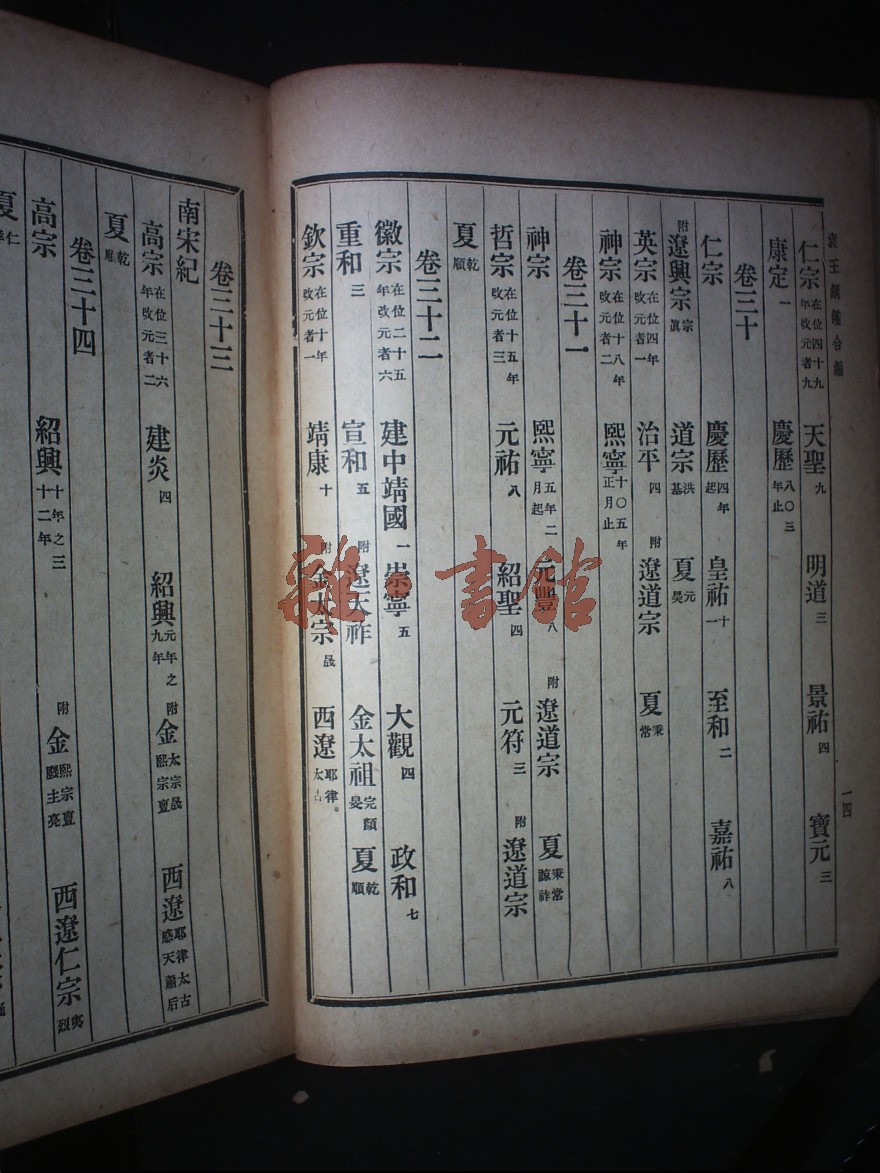 袁王綱鑑合編
一四
仁宗 在位四十九年改元者九 天聖九 明道三 景祐四 寶元三
康定一 慶歷八〇三年止
卷三十
仁宗 慶歷四年起 皇祐十一 至和二 嘉祐八
附遼興宗宗眞 道宗洪基 夏元昊
英宗 在位四年改元者一 治平四 附遼道宗 夏秉常
神宗 在位十八年改元者二 熙寧十〇五年正月止
卷三十一
神宗 熙寧五年二月起 元豐八 附遼道宗 夏秉常諒祚
哲宗 在位十五年改元者三 元祐八 紹聖四 元符三 附遼道宗
夏乾順
卷三十二
徽宗 在位二十五年改元者六 建中靖國一 崇寧五 大觀四 政和七
重和三 宣和五 附遼天祚 金太祖完顏旻 夏乾順
欽宗 在位十年改元者一 靖康十 附金太宗晟 西遼耶律太古
卷三十三
南宋紀
高宗 在位三十六年改元者二 建炎四 紹興元年之九年 附金太宗晟熙宗亶 西遼耶律太古感天蕭后
夏乾順
卷三十四
高宗 紹興十年之三十二年 附金熙宗亶廢主亮 西遼仁宗夷烈
夏仁
雜·書館